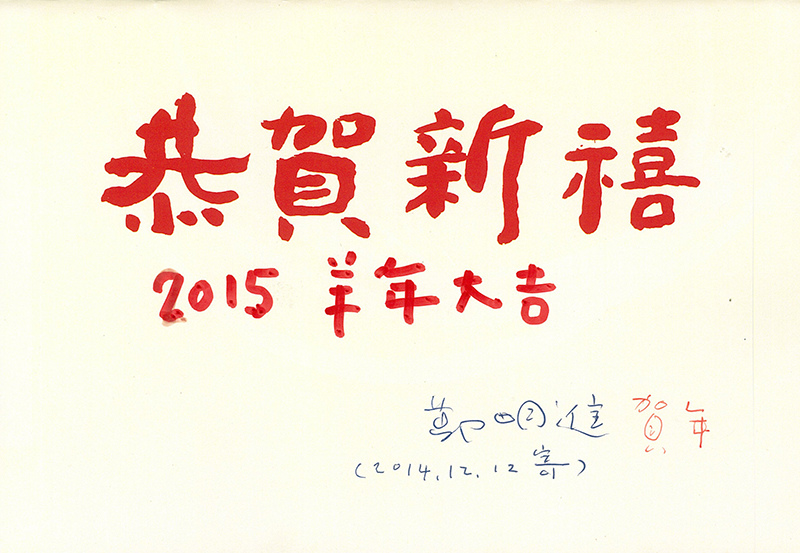 恭賀新禧
2015 羊年大吉
鄭明進 賀年
(2014.12.12寄)